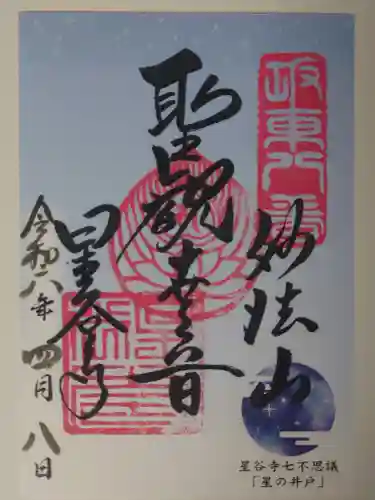 妙法山
聖観世音
星谷寺
令和六年四月八日
星谷寺七不思議
「星の井戸」